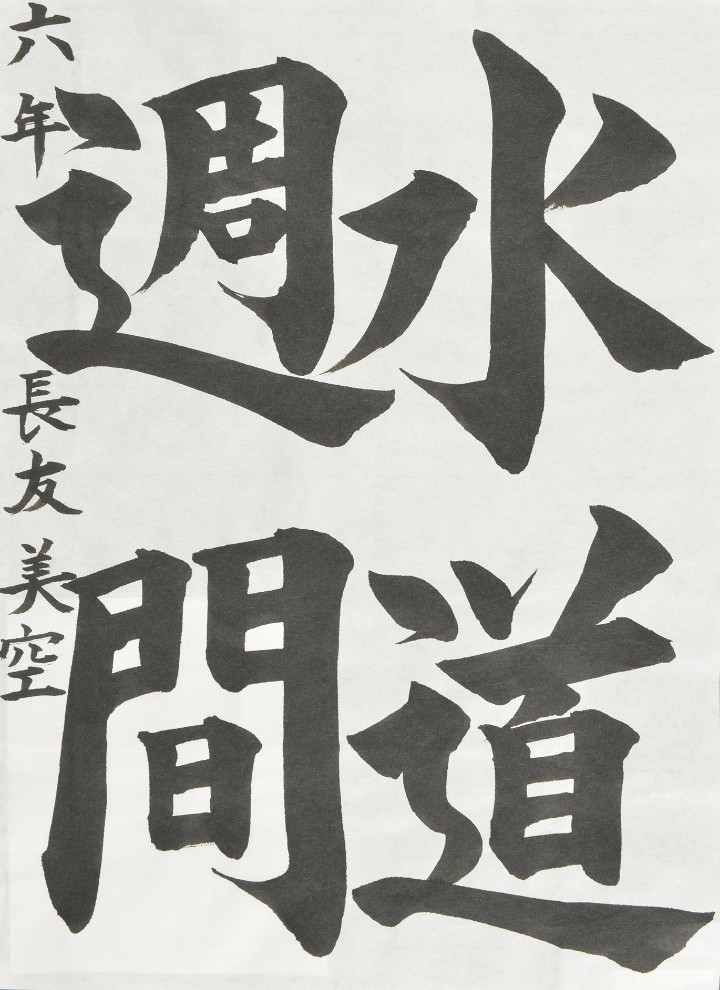 水道
週間
六年 長友美空